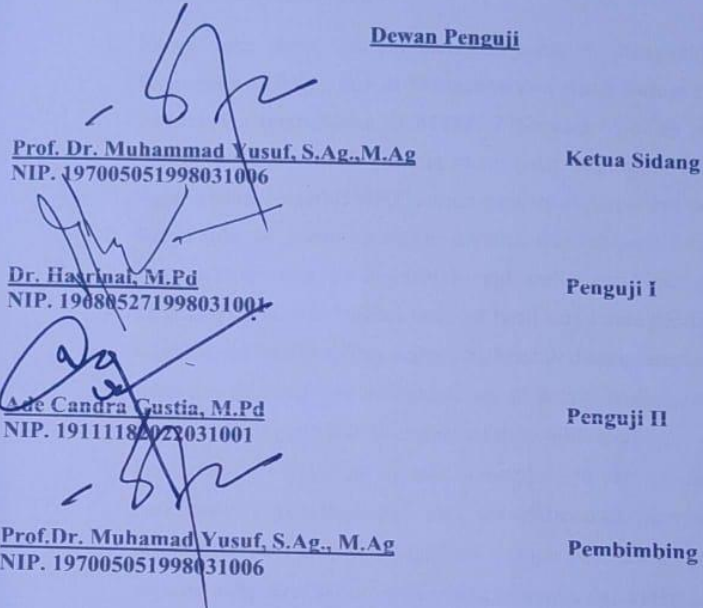 Dewan Penguji
Prof. Dr. Muhammad Yusuf, S.Ag.,M.Ag
NIP. 197005051998031006
Ketua Sidang
Dr. Hasrinal, M.Pd
NIP. 196805271998031001
Penguji I
Ade Candra Gustia, M.Pd
NIP. 19111182022031001
Penguji II
Prof.Dr. Muhamad Yusuf, S.Ag., M.Ag
NIP. 197005051998031006
Pembimbing